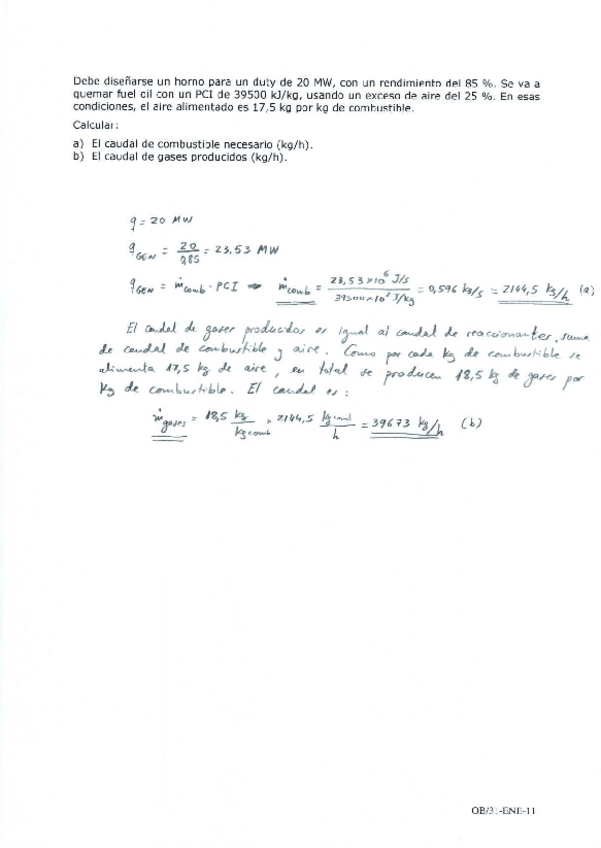 Debe diseñarse un horno para un duty de 20 MW, con un rendimiento del 85 %. Se va a
quemar fuel oil con un PCI de 39500 kJ/kg, usando un exceso de aire del 25 %. En esas
condiciones, el aire alimentado es 17,5 kg por kg de combustible.
Calcular:
a) El caudal de combustible necesario (kg/h).
b) El caudal de gases producidos (kg/h).
q = 20 MW
q_GEN = 20/0,85 = 23,53 MW
q_GEN = ṁ_comb · PCI ⇒ ṁ_comb = 23,53×10⁶ J/s / 39500×10³ J/kg = 0,596 kg/s = 2144,5 kg/h (a)
El caudal de gases producidos es igual al caudal de reaccionantes, suma
de caudal de combustible y aire. Como por cada kg de combustible se
alimenta 17,5 kg de aire, en total se producen 18,5 kg de gases por
kg de combustible. El caudal es:
ṁ_gases = 18,5 kg/kg comb × 2144,5 kg comb/h = 39673 kg/h (b)
OB/31-ENE-11